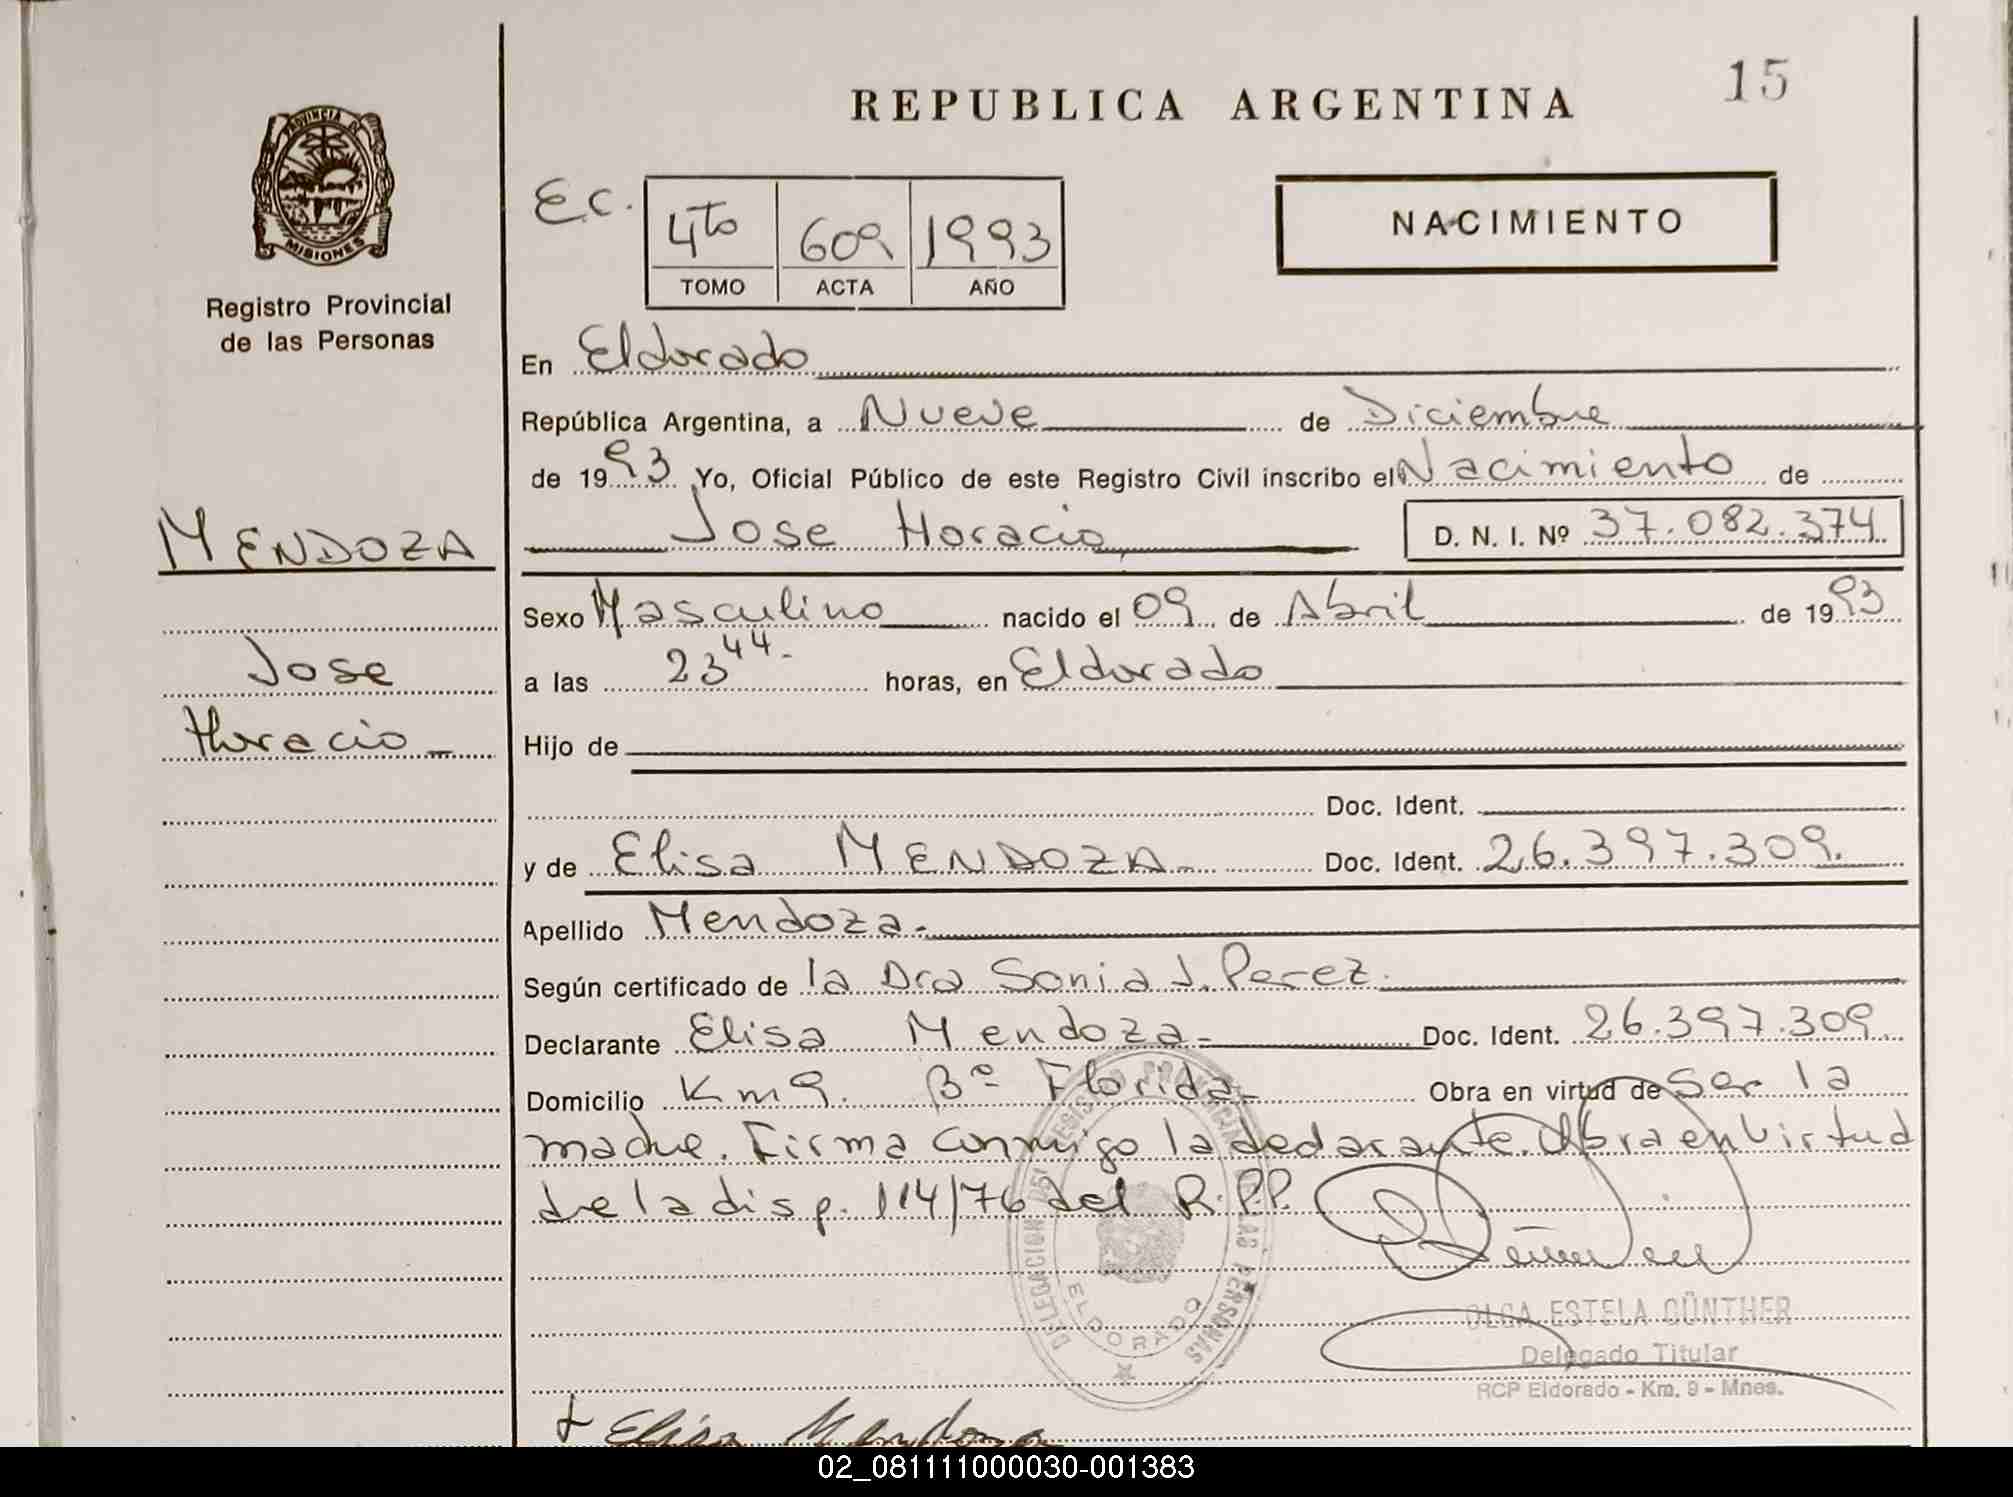 15
REPUBLICA ARGENTINA
PROVINCIA DE
MISIONES
Registro Provincial
de las Personas
E.C.
4to 609 1993
TOMO ACTA AÑO
NACIMIENTO
En Eldorado
República Argentina, a Nueve de Diciembre
de 1993 Yo, Oficial Público de este Registro Civil inscribo el Nacimiento de
MENDOZA
Jose Horacio D. N. I. Nº 37.082.374
Sexo Masculino nacido el 09 de Abril de 1993
Jose
a las 23 44.- horas, en Eldorado
Horacio -
Hijo de
Doc. Ident.
y de Elisa MENDOZA- Doc. Ident. 26.397.309.
Apellido Mendoza.-
Según certificado de la Dra Sonia J. Perez.
Declarante Elisa Mendoza.- Doc. Ident. 26.397.309.
Domicilio Km 9. Bº Florida- Obra en virtud de Ser la
madre. Firma conmigo la declarante. Obra en virtud
de la disp. 114/76 del R.P.P.
DELEGACION DEL REGISTRO PROVINCIAL DE LAS PERSONAS
ELDORADO
OLGA ESTELA GÜNTHER
Delegado Titular
RCP Eldorado - Km. 9 - Mnes.
+ Elisa Mendoza
02_081111000030-001383